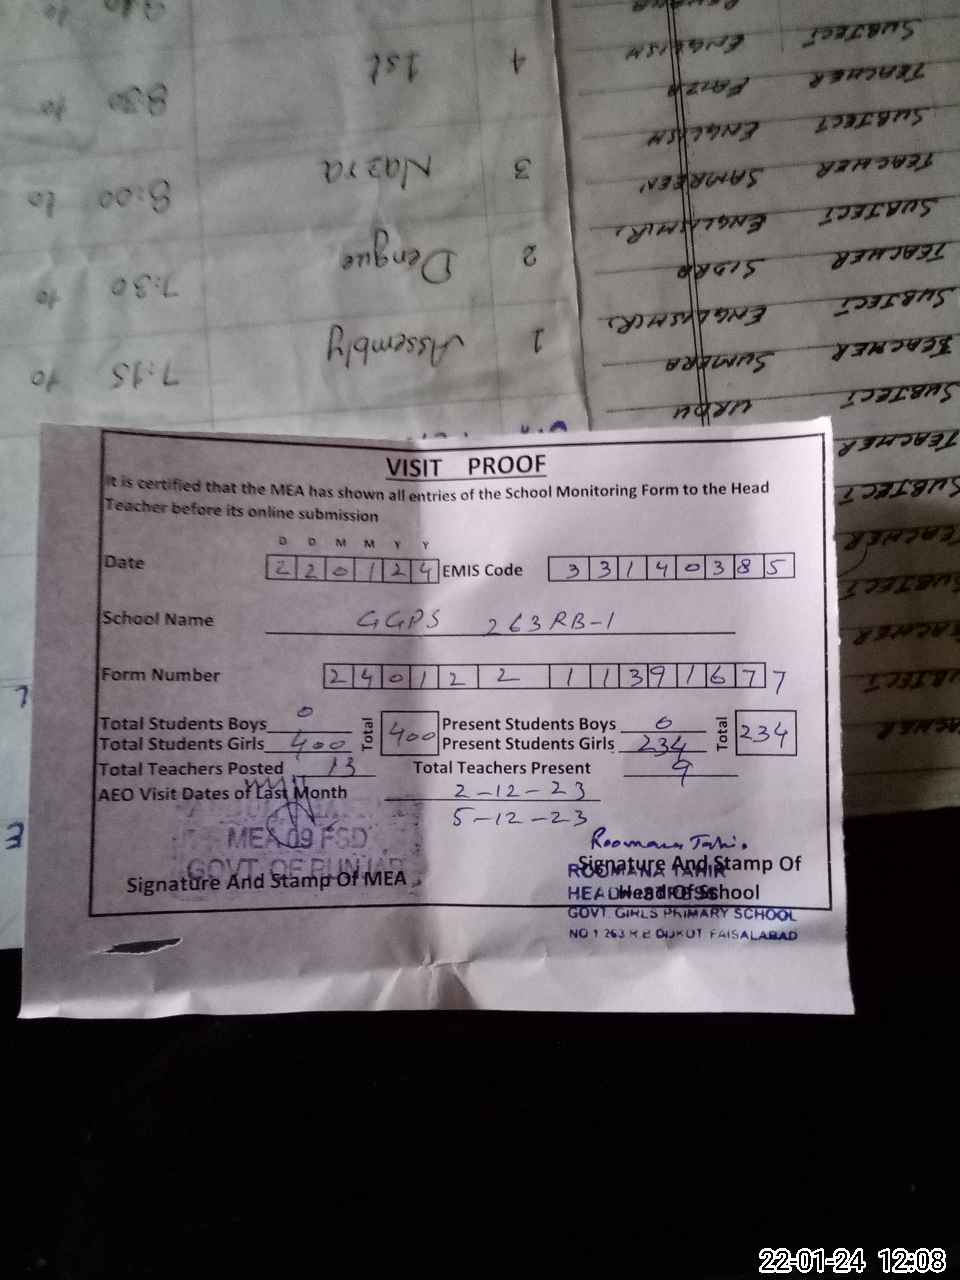 SUBJECT ENGLISH
4 1st
TEACHER FAIZA
8:30 to
SUBJECT ENGLISH
3 Nazra
TEACHER SAMREEN
8:00 to
SUBJECT ENGLISH
2 Dengue
TEACHER SIDRA
7:30 to
SUBJECT ENGLISH
1 Assembly
TEACHER SUMERA
7:15 to
SUBJECT URDU
TEACHER
SUBJECT
TEACHER
SUBJECT
VISIT PROOF
It is certified that the MEA has shown all entries of the School Monitoring Form to the Head
Teacher before its online submission
D D M M Y Y
Date 220124 EMIS Code 33140385
School Name GGPS 263RB-1
Form Number 24012211391677
Total Students Boys 0 Total 400 Present Students Boys 0 Total 234
Total Students Girls 400 Present Students Girls 234
Total Teachers Posted 13 Total Teachers Present 9
AEO Visit Dates of Last Month 2-12-23
5-12-23
MEA 09 FSD
GOVT. OF PUNJAB
Signature And Stamp Of MEA
Roomana Tahir
Signature And Stamp Of
ROOMANA TAHIR
Head Of School
HEADMISTRESS
GOVT. GIRLS PRIMARY SCHOOL
NO 1 263 R.B DIJKOT FAISALABAD
22-01-24 12:08